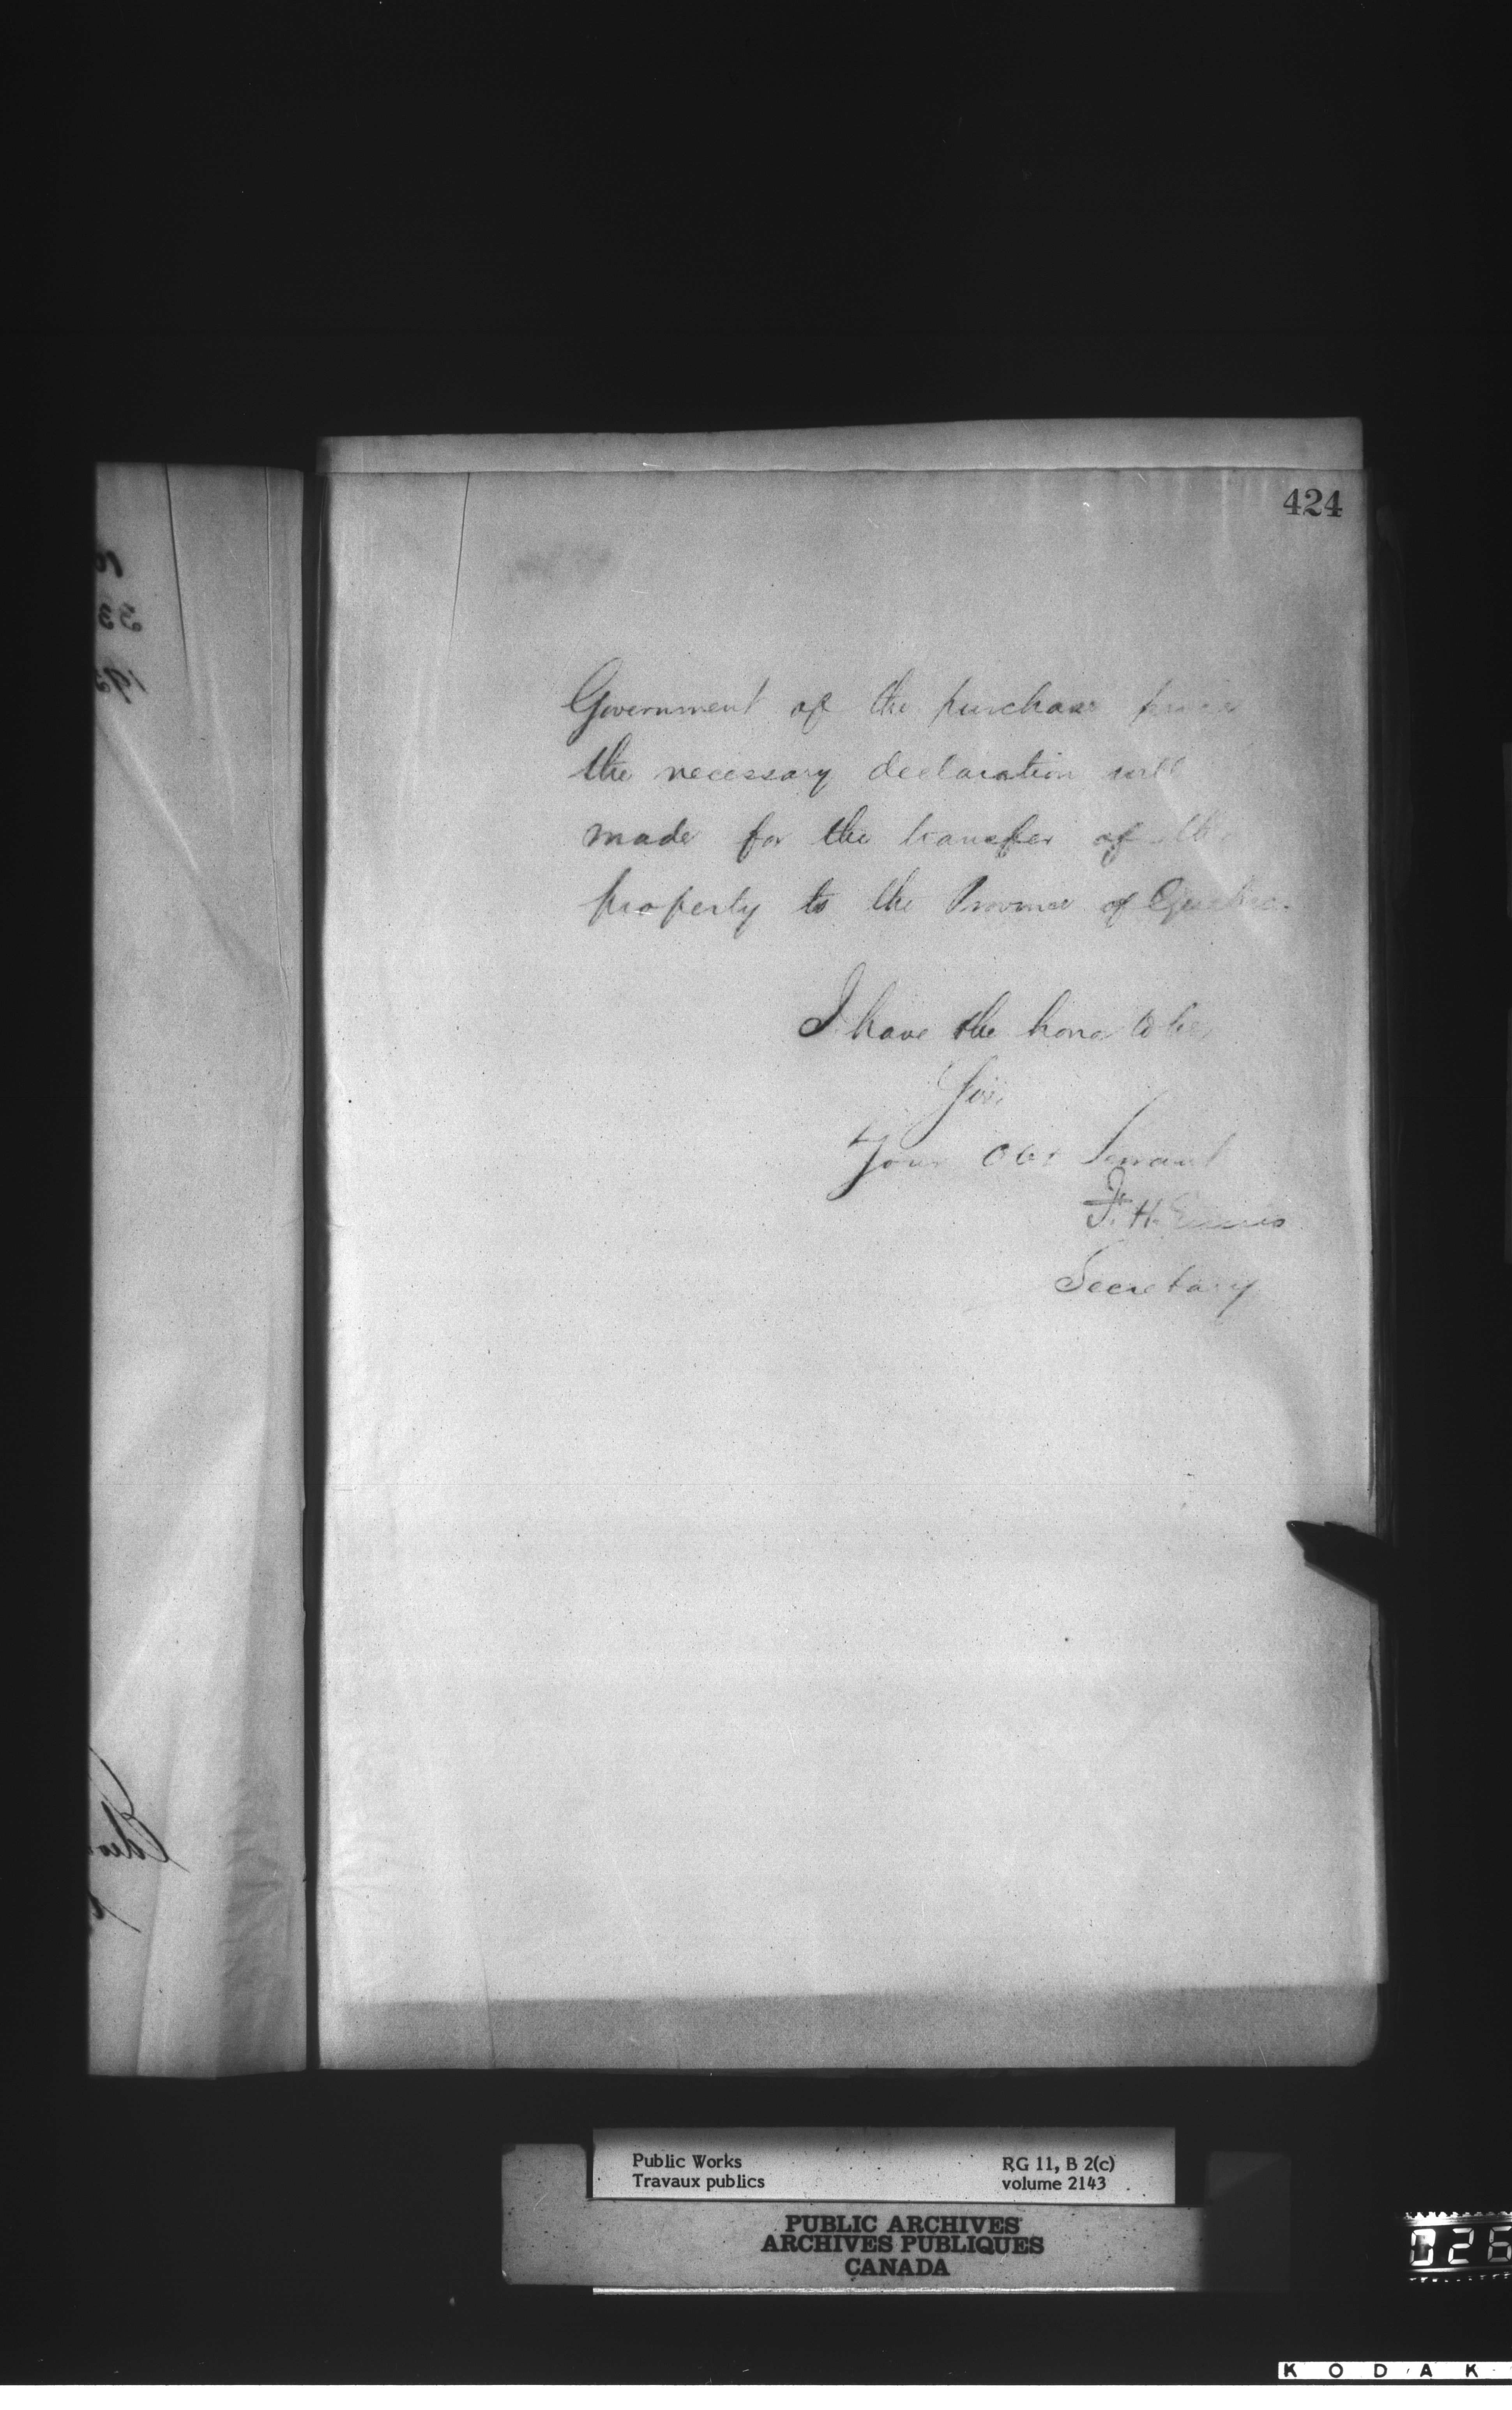 424
Government of the purchase price
the necessary declaration will
made for the transfer of the
property to the Province of Quebec.
I have the honor to be,
Sir,
Your Obt Servant
F. H. Ennis
Secretary
Public Works
Travaux publics
RG 11, B 2(c)
volume 2143
PUBLIC ARCHIVES
ARCHIVES PUBLIQUES
CANADA
026
KODAK